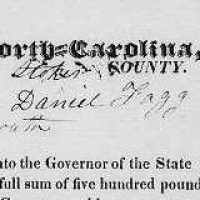 orth=Carolina,
Stokes COUNTY.
Daniel Fagg
outh
nto the Governor of the State
full sum of five hundred pound